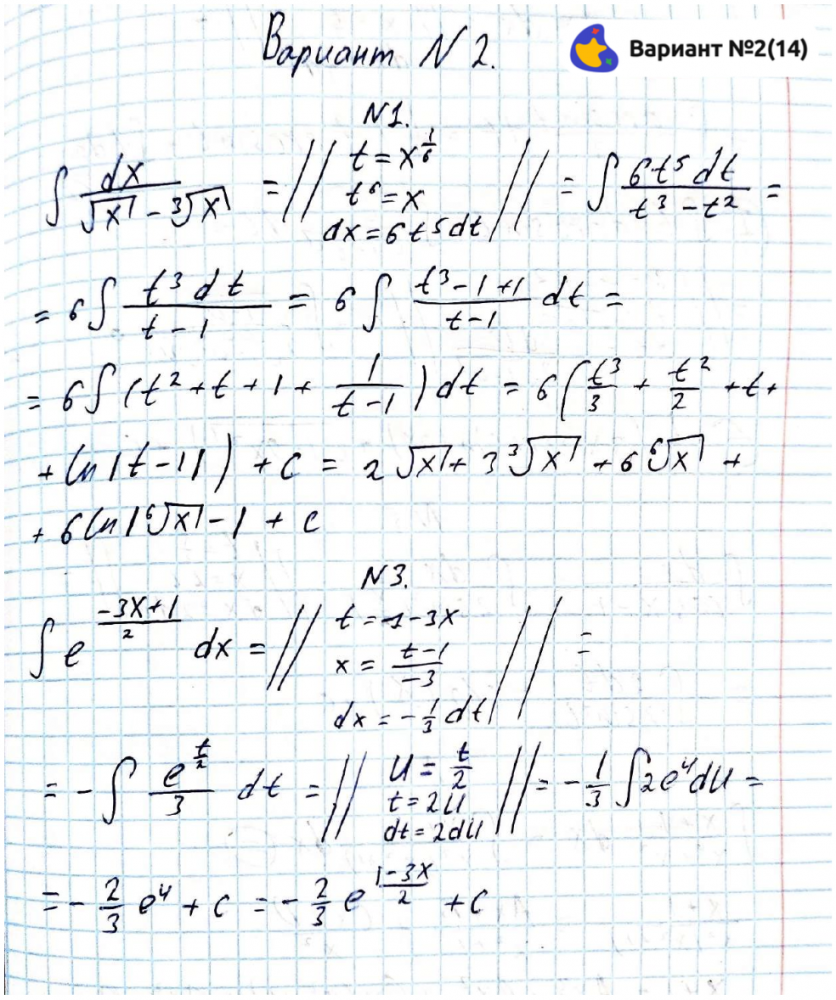 Вариант N 2.
Вариант №2(14)
N1.
∫ dx/(√x - ∛x) = // t = x^(1/6) t^6 = x dx = 6t^5dt // = ∫ 6t^5dt/(t^3 - t^2) =
= 6∫ t^3dt/(t-1) = 6∫ (t^3-1+1)/(t-1) dt =
= 6∫(t^2+t+1+ 1/(t-1))dt = 6(t^3/3 + t^2/2 + t +
+ ln|t-1|) + c = 2√x + 3∛x + 6 ⁶√x +
+ 6ln|⁶√x - 1 + c
N3.
∫ e^((-3x+1)/2) dx = // t = 1-3x x = (t-1)/(-3) dx = -1/3 dt // =
= -∫ e^(t/2)/3 dt = // u = t/2 t = 2u dt = 2du // = -1/3 ∫2e^u du =
= -2/3 e^u + c = -2/3 e^((1-3x)/2) + c